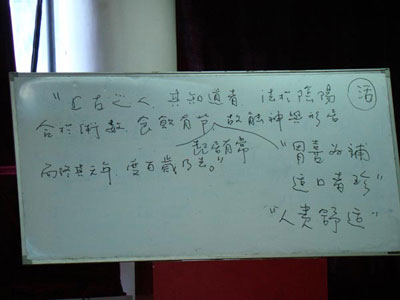 "上古之人，其知道者，法於陰陽 活
合於術数，食飲有节，故能神與形俱
起居有常 "因善为補
而终其天年，度百歲乃去。" 适口者珍"
"人贵舒适"